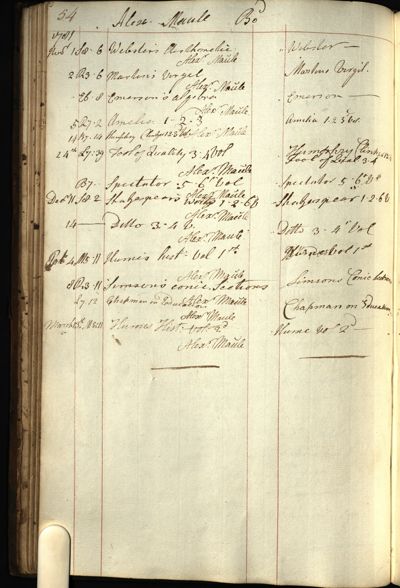 54 Alexr Maule Bo
1781
1 S8-6 Webster's Arithmetic Webster
Alexr Maule
2 R3-6 Martin's Virgel Martins Virgil.
Alexr Maule
E6-8 Emerson's algebra Emerson
Alexr Maule
5 R7-2 Amelia 1-2-3 Amelia 1 2 3 Vol
14 R7-14 Humphry Clinker 1 2 3 Alexr Maule Humphry Clinker 1 2 3
24th L7-39 Fool of Quality 3-4 Vol Fool of Qual 3-4
Alexr Maule
B7- Spectator 5-6 Vol Spectator 5-6 Vol
Alexr Maule
Decr 11 Shakspear's Works 1-2-6 Shakespear 1-2-6
Alexr Maule
14 Ditto 3-4 V. Ditto 3-4 Vol
Alexr Maule
4 M5-11 Hume's hist. Vol 1st Vol 1st
Alexr Maule
8 R3-11 Simson's conic Sections Simsons Conic Sections
Alexr Maule
L7-12 Chapman on Education Chapman on Education
Alexr Maule
March Hume's Hist. Vol 2d Hume Vol 2d
Alexr Maule